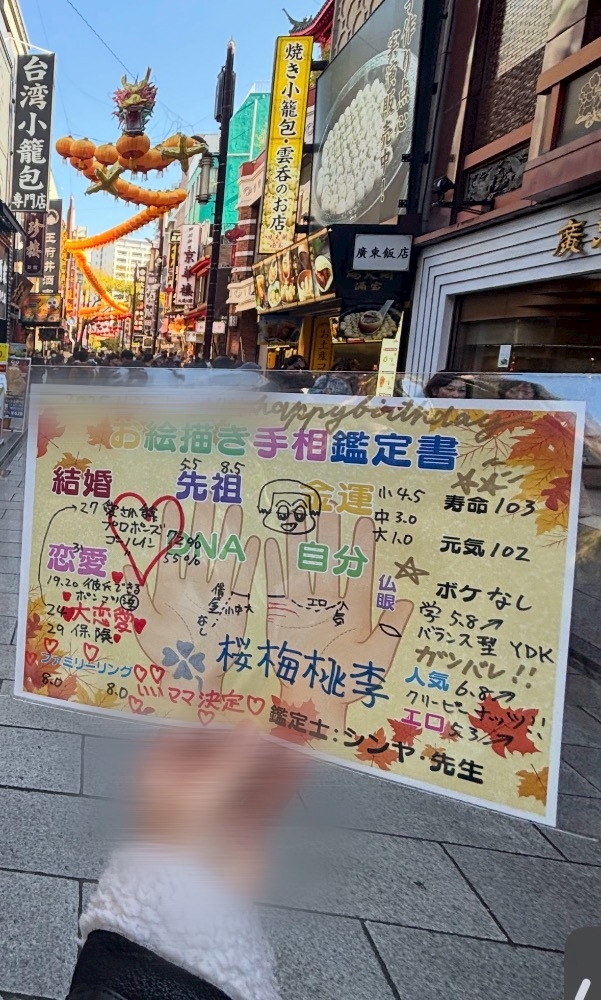 台湾小籠包
専門店
王府井酒
京華樓
焼き小籠包・雲呑のお店
廣東飯店
廣
happybirthday
お絵描き手相鑑定書
結婚
先祖
5.5 8.5
金運
小4.5
中3.0
大1.0
寿命103
元気102
ボケなし
27
プロポーズ
ゴールイン
DNA
73%
55%
自分
仏眼
恋愛
19.20 彼氏できる
24 大恋愛
29 保険
なし
エロ
学5.8↗
バランス型 YDK
ガンバレ!!
桜梅桃李
人気6.8↗
クリーピーナッツ!!
エロ5.3↗
ファミリーリング
8.0 8.0
いいママ決定
鑑定士:シンヤ・先生